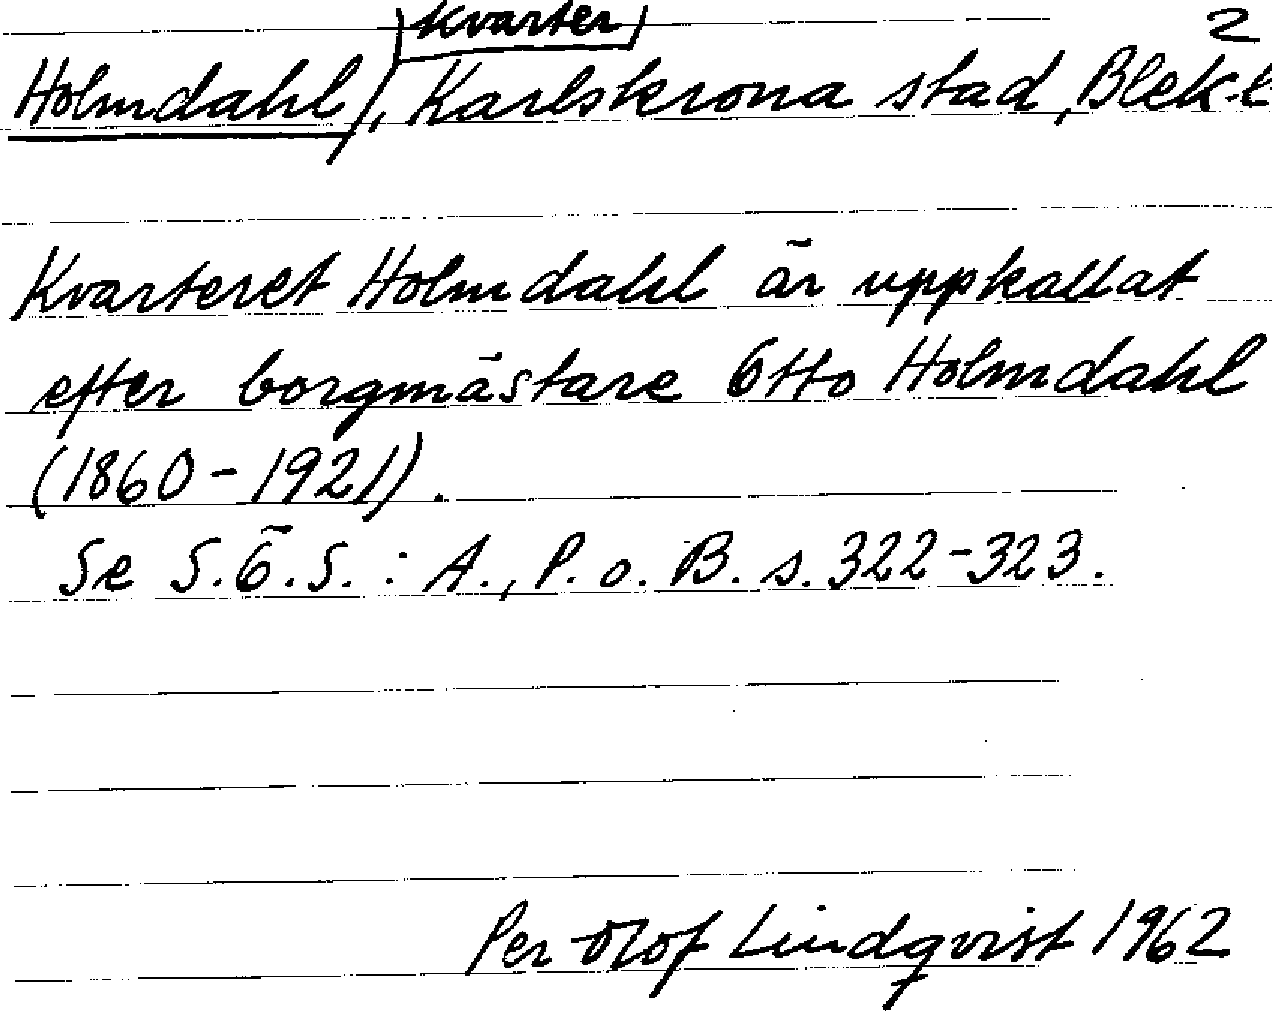 kvarter 2
Holmdahl, Karlskrona stad, Blek.l.
Kvarteret Holmdahl är uppkallat
efter borgmästare Otto Holmdahl
(1860-1921).
Se S.Ö.S.: A., P. o. B. s. 322-323.
Per-Olof Lindqvist 1962